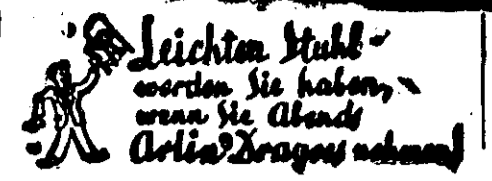 Leichten Stuhl
werden Sie haben,
wenn Sie Abends
Arlin Dragees nehmen!